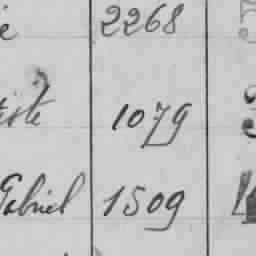 e 2268
iste 1079
Gabriel 1509